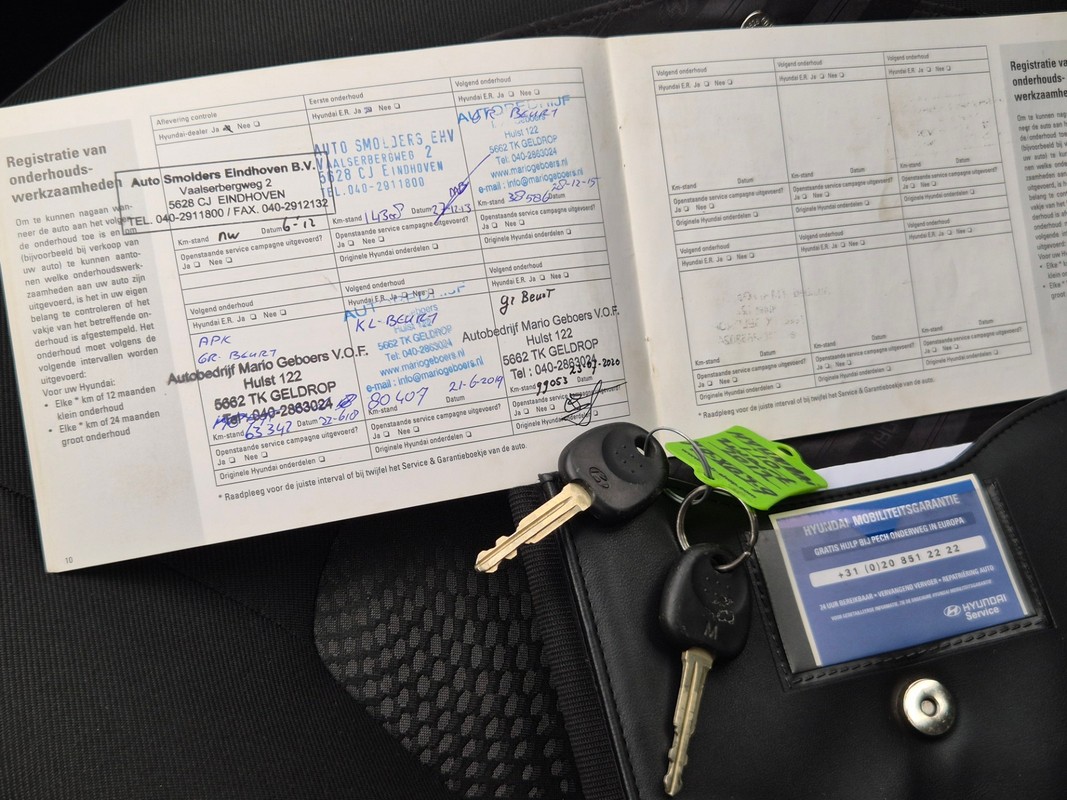 Registratie van
onderhouds-
werkzaamheden
Om te kunnen nagaan wan-
neer de auto aan het volgen-
de onderhoud toe is en om
(bijvoorbeeld bij verkoop van
uw auto) te kunnen aanto-
nen welke onderhoudswerk-
zaamheden aan uw auto zijn
uitgevoerd, is het in uw eigen
belang te controleren of het
vakje van het betreffende on-
derhoud is afgestempeld. Het
onderhoud moet volgens de
volgende intervallen worden
uitgevoerd:
Voor uw Hyundai:
• Elke * km of 12 maanden
klein onderhoud
• Elke * km of 24 maanden
groot onderhoud
10
Aflevering controle
Hyundai-dealer Ja Nee
Auto Smolders Eindhoven B.V.
Vaalserbergweg 2
5628 CJ EINDHOVEN
TEL. 040-2911800 / FAX. 040-2912132
Km-stand nw Datum 6-12
Openstaande service campagne uitgevoerd?
Ja Nee
Eerste onderhoud
Hyundai E.R. Ja Nee
AUTO SMOLDERS EHV
VAALSERBERGWEG 2
5628 CJ EINDHOVEN
TEL.040-2911800
Km-stand 14308 Datum
Openstaande service campagne uitgevoerd?
Ja Nee
Originele Hyundai onderdelen
Volgend onderhoud
Hyundai E.R. Ja Nee
AUTOBEDRIJF
BEURT
Hulst 122
5662 TK GELDROP
Tel: 040-2863024
www.mariogeboers.nl
e-mail: info@mariogeboers.nl
Km-stand 38586 Datum 28-12-15
Openstaande service campagne uitgevoerd?
Ja Nee
Originele Hyundai onderdelen
Volgend onderhoud
Hyundai E.R. Ja Nee
APK
GR. BEURT
Autobedrijf Mario Geboers V.O.F.
Hulst 122
5662 TK GELDROP
Tel: 040-2863024
Km-stand 63342 Datum 22-618
Openstaande service campagne uitgevoerd?
Ja Nee
Originele Hyundai onderdelen
Volgend onderhoud
Hyundai E.R. Ja Nee
KL-BEURT
Hulst 122
5662 TK GELDROP
Tel: 040-2863024
www.mariogeboers.nl
e-mail: info@mariogeboers.nl
Km-stand 80407 Datum 21-6-2019
Openstaande service campagne uitgevoerd?
Ja Nee
Originele Hyundai onderdelen
Volgend onderhoud
Hyundai E.R. Ja Nee
gr Beurt
Autobedrijf Mario Geboers V.O.F.
Hulst 122
5662 TK GELDROP
Tel : 040-2863024
Km-stand 99053 Datum 23-09-2020
Openstaande service campagne uitgevoerd?
Ja Nee
Originele Hyundai onderdelen
* Raadpleeg voor de juiste interval of bij twijfel het Service & Garantieboekje van de auto.
Volgend onderhoud
Hyundai E.R. Ja Nee
Km-stand Datum
Openstaande service campagne uitgevoerd?
Ja Nee
Originele Hyundai onderdelen
Volgend onderhoud
Hyundai E.R. Ja Nee
Km-stand Datum
Openstaande service campagne uitgevoerd?
Ja Nee
Originele Hyundai onderdelen
Volgend onderhoud
Hyundai E.R. Ja Nee
Km-stand Datum
Openstaande service campagne uitgevoerd?
Ja Nee
Originele Hyundai onderdelen
Volgend onderhoud
Hyundai E.R. Ja Nee
Km-stand Datum
Openstaande service campagne uitgevoerd?
Ja Nee
Originele Hyundai onderdelen
Volgend onderhoud
Hyundai E.R. Ja Nee
Km-stand Datum
Openstaande service campagne uitgevoerd?
Ja Nee
Originele Hyundai onderdelen
Volgend onderhoud
Hyundai E.R. Ja Nee
Km-stand Datum
Openstaande service campagne uitgevoerd?
Ja Nee
Originele Hyundai onderdelen
* Raadpleeg voor de juiste interval of bij twijfel het Service & Garantieboekje van de auto.
Registratie va
onderhouds-
werkzaamhe
HYUNDAI MOBILITEITSGARANTIE
GRATIS HULP BIJ PECH ONDERWEG IN EUROPA
+31 (0)20 851 22 22
24 UUR BEREIKBAAR • VERVANGEND VERVOER • REPATRIËRING AUTO
HYUNDAI
Service
M